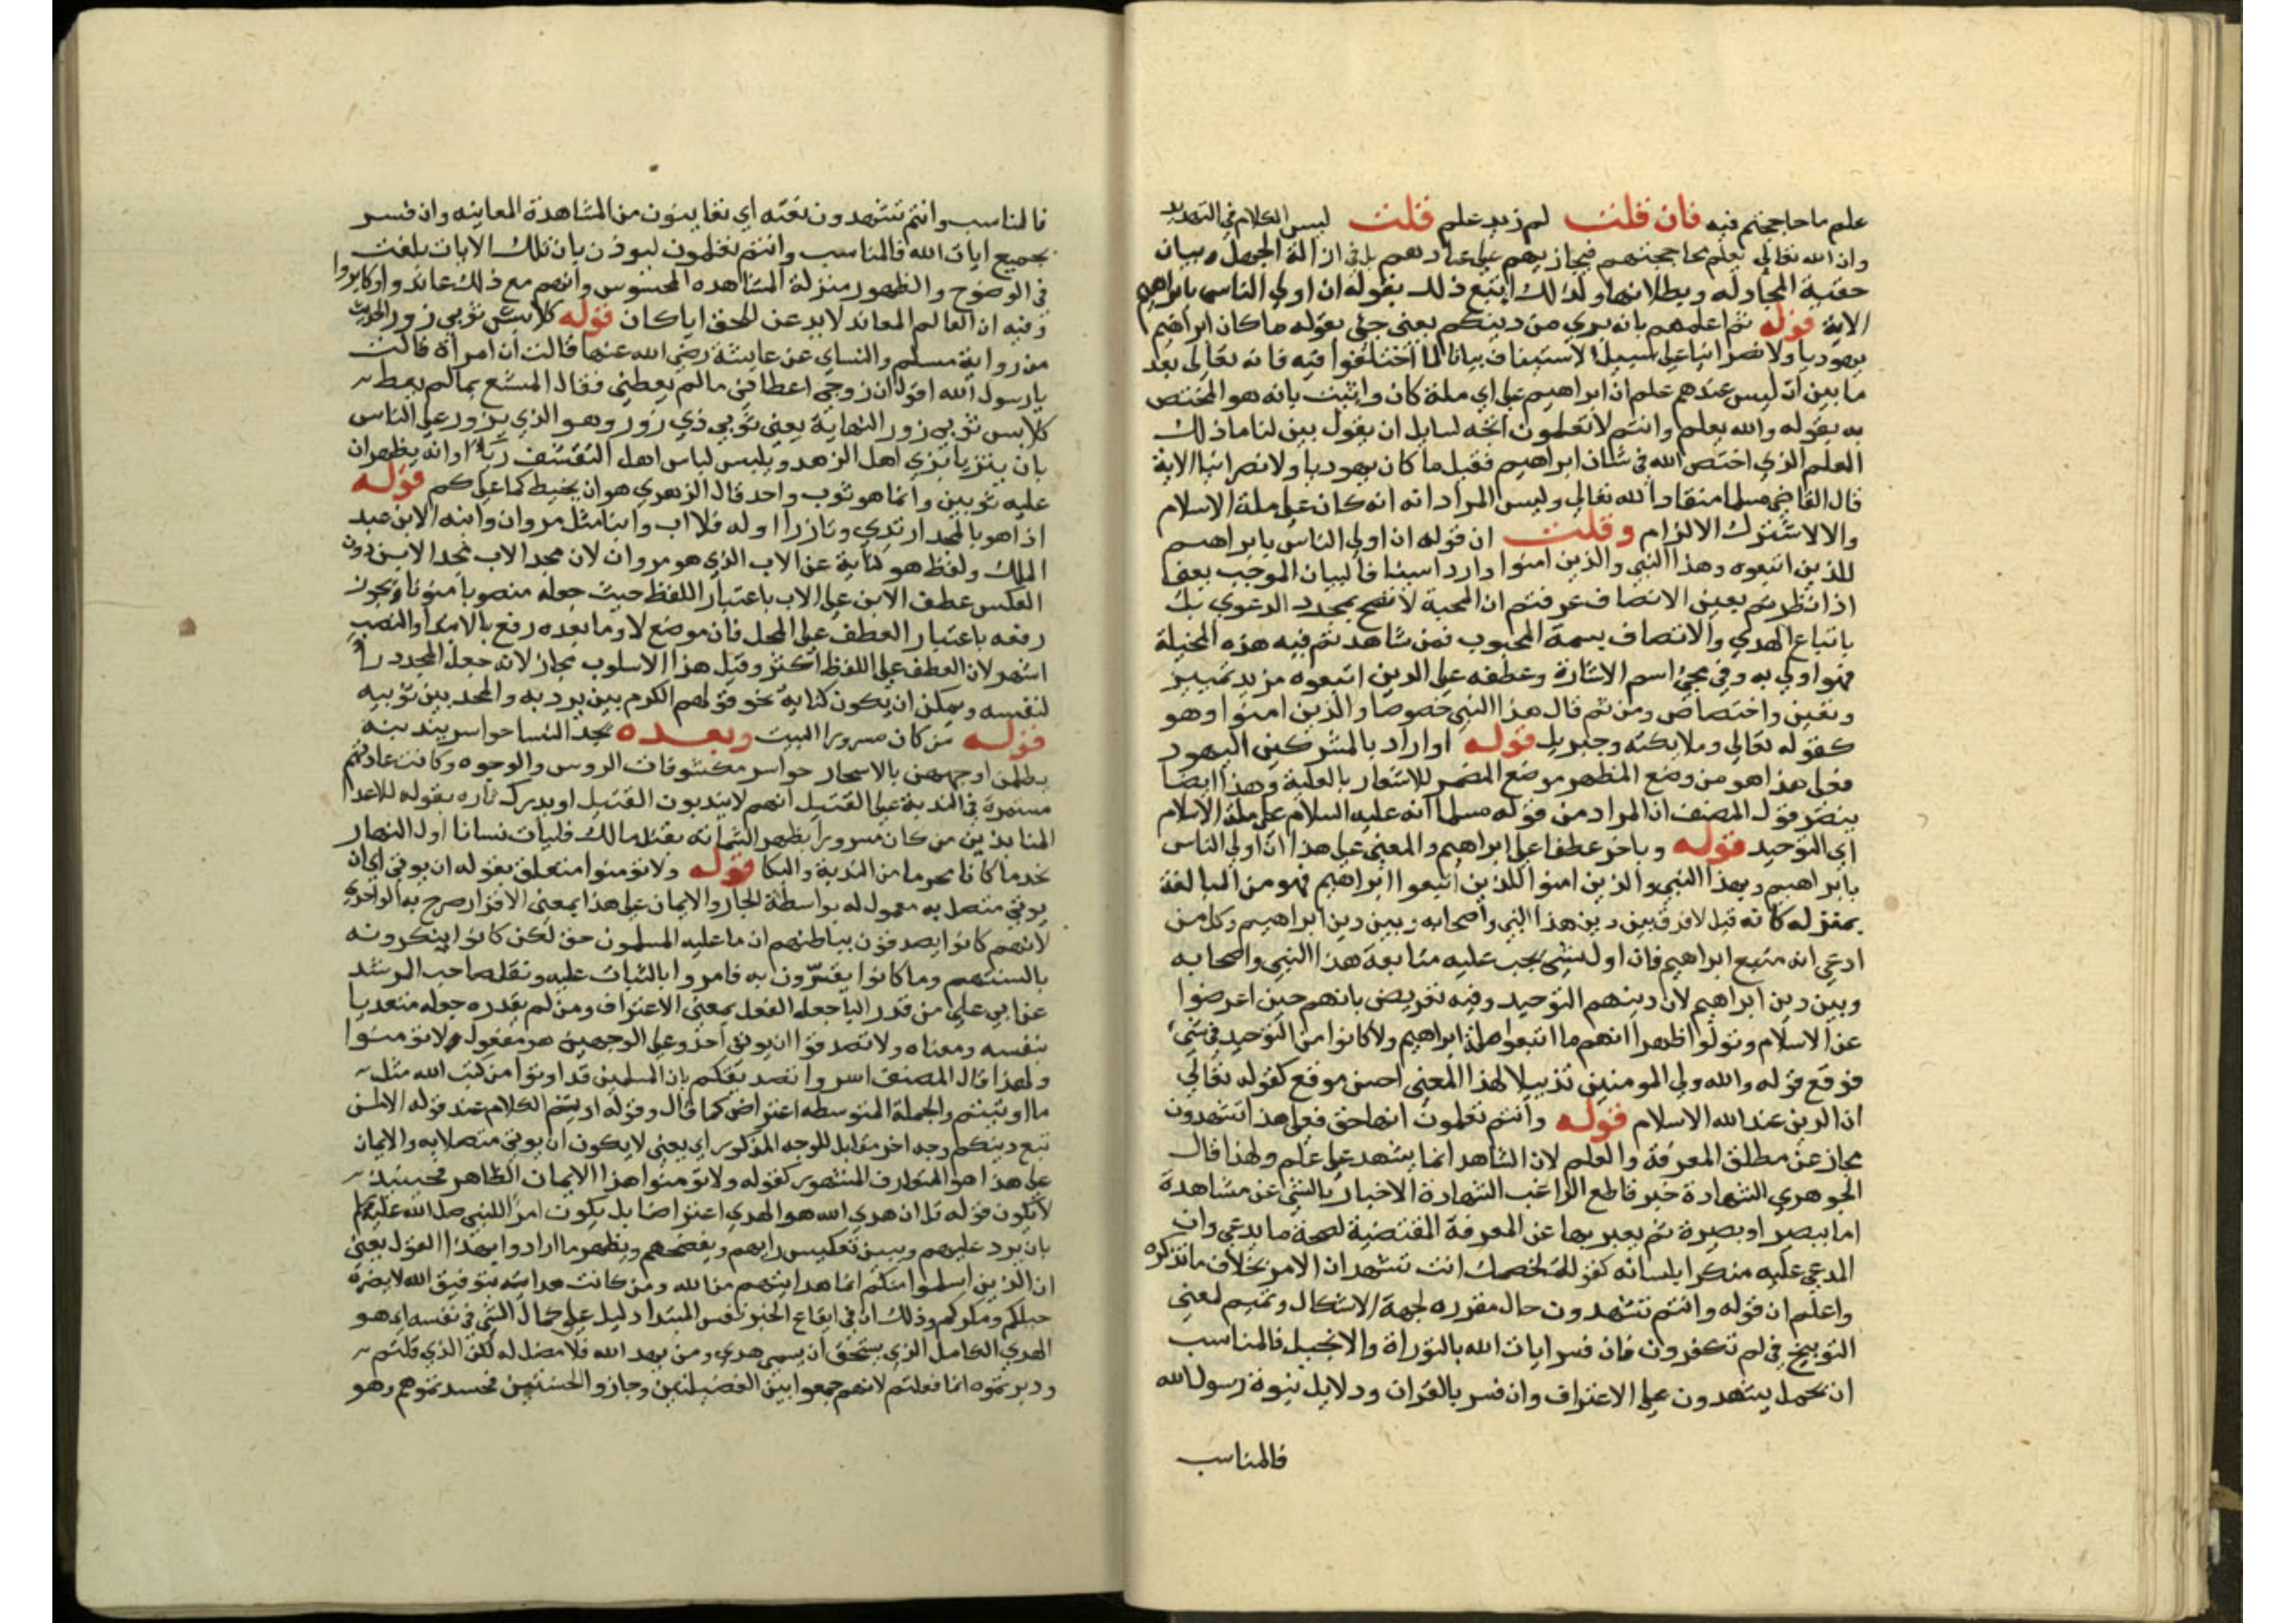 علم ما حاججتم فيه فان قلت لم زيد علم قلت ليس الكلام في التهديد
وان الله تعالي يعلم محاججتهم فيجازيهم علي عنادهم بل في ازالة الجهل وبيان
حقية المجادله وبطلانها ولذلك اتبع ذلك بقوله ان اولي الناس بابراهيم
الاية قوله ثم اعلمهم بانه بري من دينكم يعني جئ بقوله ما كان ابراهيم
يهوديا ولا نصرانيا علي سبيل الاستيناف بيانا لما اختلفوا فيه فانه تعالي بعد
ما بين ان ليس عندهم علم ان ابراهيم علي اي ملة كان واثبت بانه هو المختص
به بقوله والله يعلم وانتم لا تعلمون اتجه لسايل ان يقول بين لنا ما ذلك
العلم الذي اختص الله في شان ابراهيم فقيل ما كان يهوديا ولا نصرانيا الاية
قال القاضي مسلما منقادا لله تعالي وليس المراد انه كان علي ملة الاسلام
والا لاشترك الالزام وقلت ان قوله ان اولي الناس بابراهيم
للذين اتبعوه وهذا النبي والذين امنوا وارد استينافا لبيان الموجب يعني
اذا نظرتم بعين الانصاف عرفتم ان المحبة لا تصح بمجرد الدعوي بل
باتباع الهدي والاتصاف بسمة المحبوب فمن شاهدتم فيه هذه المخيلة
فهو اولي به وفي مجئ اسم الاشارة وعطفه علي الذين اتبعوه مزيد تمييز
وتعين واختصاص ومن ثم قال هذا النبي خصوصا والذين امنوا وهو
كقوله تعالي وملايكته وجبريل قوله او اراد بالمشركين اليهود
فعلي هذا هو من وضع المظهر موضع المضمر للاشعار بالعلية وهذا ايضا
ينصر قول المصنف ان المراد من قوله مسلما انه عليه السلام علي ملة الاسلام
اي التوحيد قوله وبالجر عطفا علي ابراهيم والمعني علي هذا ان اولي الناس
بابراهيم وبهذا النبي والذين امنوا للذين اتبعوا ابراهيم فهو من المبالغة
بمنزله كانه قيل لا فرق بين دين هذا النبي واصحابه وبين دين ابراهيم وكل من
ادعي انه متبع ابراهيم فان اول شئ يجب عليه متابعة هذا النبي واصحابه
وبين دين ابراهيم لان دينهم التوحيد وفيه تعريض بانهم حين اعرضوا
عن الاسلام وتولوا اظهروا انهم ما اتبعوا ملة ابراهيم ولا كانوا من التوحيد في شئ
فوقع قوله والله ولي المومنين تذييلا لهذا المعني احسن موقع كقوله تعالي
ان الدين عند الله الاسلام قوله وانتم تعلمون انها حق فعلي هذا تشهدون
مجاز عن مطلق المعرفة والعلم لان الشاهد انما يشهد علي علم ولهذا قال
الجوهري الشهادة خبر قاطع الراغب الشهادة الاخبار بالشئ عن مشاهدة
اما ببصر او بصيرة ثم يعبر بها عن المعرفة المقتضية لصحة ما يدعي وان
المدعي عليه منكرا بلسانه كقولك لخصمك انت تشهد ان الامر بخلاف ما تذكره
واعلم ان قوله وانتم تشهدون حال مقرره لجهة الاشكال وتتميم لمعني
التوبيخ في لم تكفرون فان فسر ايات الله بالتوراة والانجيل فالمناسب
ان تحمل يشهدون علي الاعتراف وان فسر بالقران ودلايل نبوة رسول الله
فالمناسب
فالمناسب وانتم تشهدون نعته اي تعاينون من المشاهدة المعاينه وان فسر
بجميع ايات الله فالمناسب وانتم تعلمون ليوذن بان تلك الايات بلغت
في الوضوح والظهور منزلة المشاهده المحسوس وانهم مع ذلك عاندوا وكابروا
وفيه ان العالم المعاند لابد عن الحق ايا كان قوله كلابس ثوبي زور الحديث
من رواية مسلم والنساي عن عايشة رضي الله عنها قالت ان امراة قالت
يا رسول الله اقول ان زوجي اعطاني ما لم يعطني فقال المتشبع بما لم يعط
كلابس ثوبي زور النهاية يعني ثوبي ذي زور وهو الذي يزور علي الناس
بان يتزيا بزي اهل الزهد ويلبس لباس اهل التقشف رياء او انه يظهر ان
عليه ثوبين وانما هو ثوب واحد قال الزهري هو ان يخيط كما علي كم قوله
اذا هو بالمجد ارتدي وتازرا اوله فلا اب وابنا مثل مروان وابنه الابن عبد
الملك ولفظ هو كناية عن الاب الذي هو مروان لان مجد الاب مجد الابن دون
العكس عطف الابن علي الاب باعتبار اللفظ حيث جعله منصوبا منونا ويجوز
رفعه باعتبار العطف علي المحل فان موضع لا وما بعده رفع بالابتدا والنصب
اشهر لان العطف علي اللفظ اكثر وقيل هذا الاسلوب مجاز لانه جعل المجد ردا
لنفسه ويمكن ان يكون كناية نحو قولهم الكرم بين برديه والمجد بين ثوبيه
قوله من كان مسرورا البيت وبعده يجد النسا حواسر يندبنه
يلطمن اوجههن بالاسحار حواسر مكشوفات الروس والوجوه وكانت عادتهم
مستمرة في الندبة علي القتيل انهم لا يندبون القتيل او يدرك ثاره بقوله للاعدا
المنابذين من كان مسرورا يظهر الشماتة بقتل مالك فليات نسانا اول النهار
يجد ما كان محرما من الندبة والبكا قوله ولا تومنوا متعلق بقوله ان يوتي اي ان
يوتي متصل به معمول له بواسطة الجار والايمان علي هذا بمعني الاقرار صرح به الواحدي
لانهم كانوا يصدقون بباطنهم ان ما عليه المسلمون حق لكن كانوا ينكرونه
بالسنتهم وما كانوا يقرون به فامروا بالثبات عليه ونقل صاحب المرشد
عن ابي علي من قدر البا جعل الفعل بمعني الاعتراف ومن لم يقدره جعله متعديا
بنفسه ومعناه ولا تصدقوا ان يوتي احد وعلي الوجهين هو مفعول ولا تومنوا
ولهذا قال المصنف اسروا تصديقكم بان المسلمين قد اوتوا من كتب الله مثل
ما اوتيتم والجملة المتوسطه اعتراض كما قال وقوله او يتم الكلام عند قوله الا لمن
تبع دينكم وجه اخر مقابل للوجه المذكور اي يعني لا يكون ان يوتي متصلا به والايمان
علي هذا هو المتعارف المشهور كقوله ولا تومنوا هذا الايمان الظاهر فحينئذ
لا يكون قوله قل ان هدي الله هو الهدي اعتراضا بل يكون امرا للنبي صلي الله عليه وسلم
بان يرد عليهم ويبين تعكيس رايهم ويفضحهم ويظهر ما ارادوا بهذا القول يعني
ان الذين اسلموا منكم انما هدايتهم من الله ومن كانت هدايته بتوفيق الله لا يضره
حيلكم ومكركم وذلك ان في ايقاع الخبر نفس المبتدا دليل علي كمال الشئ في نفسه اي هو
الهدي الكامل الذي يستحق ان يسمي هدي ومن يهد الله فلا مضل له لكن الذي قلتم
ودبرتموه انما فعلتم لانهم جمعوا بين الفضيلتين وحازوا الحسنتين فحسدتموهم وهو